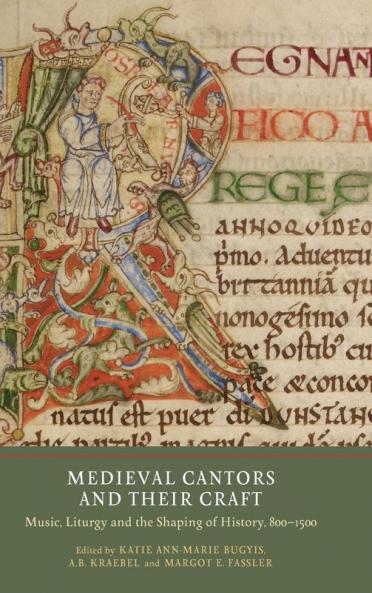 EGNAN
FICO A
REGE Æ
ANNO QVIDEO
p̄mo. Aduentu
brittanniā qu
nonogesimo se
rex hostib' cu
pace & concor
natus est puer dī DVNSTAN
MEDIEVAL CANTORS
AND THEIR CRAFT
Music, Liturgy and the Shaping of History, 800–1500
Edited by KATIE ANN-MARIE BUGYIS,
A.B. KRAEBEL and MARGOT E. FASSLER